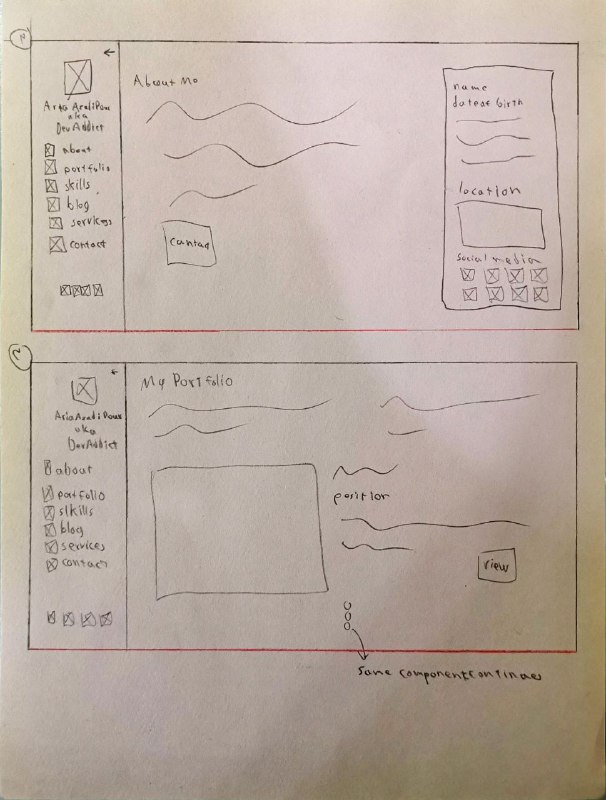 About Me
Aria AzadiPour
aka
DevAddict
about
portfolio
skills
blog
services
contact
contact
name
date of birth
location
social media
2
My Portfolio
Aria AzadiPour
aka
DevAddict
about
portfolio
slkills
blog
services
contact
position
view
Same component continues